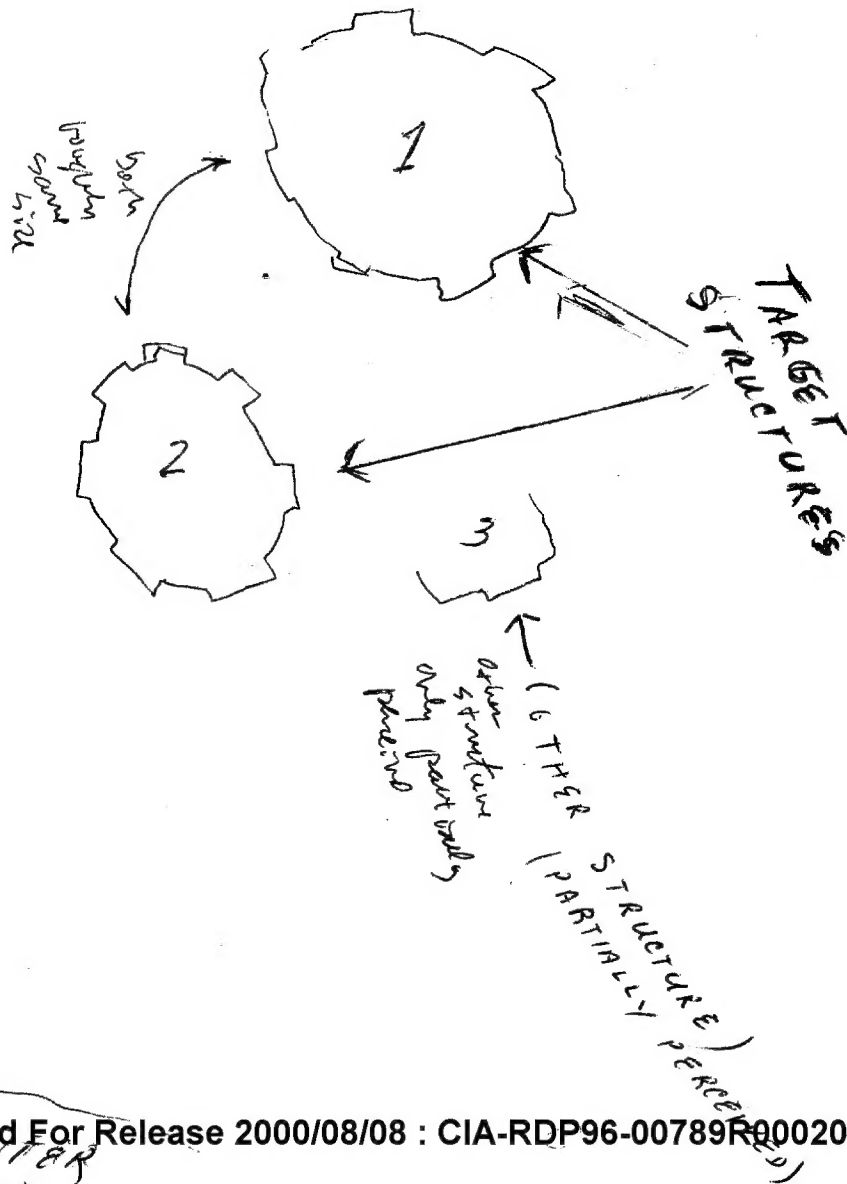 1
both
roughly
same
size
TARGET
STRUCTURES
2
3
(OTHER STRUCTURE)
(PARTIALLY PERCEIVED)
other
structure
only partially
perceived
d For Release 2000/08/08 : CIA-RDP96-00789R00020